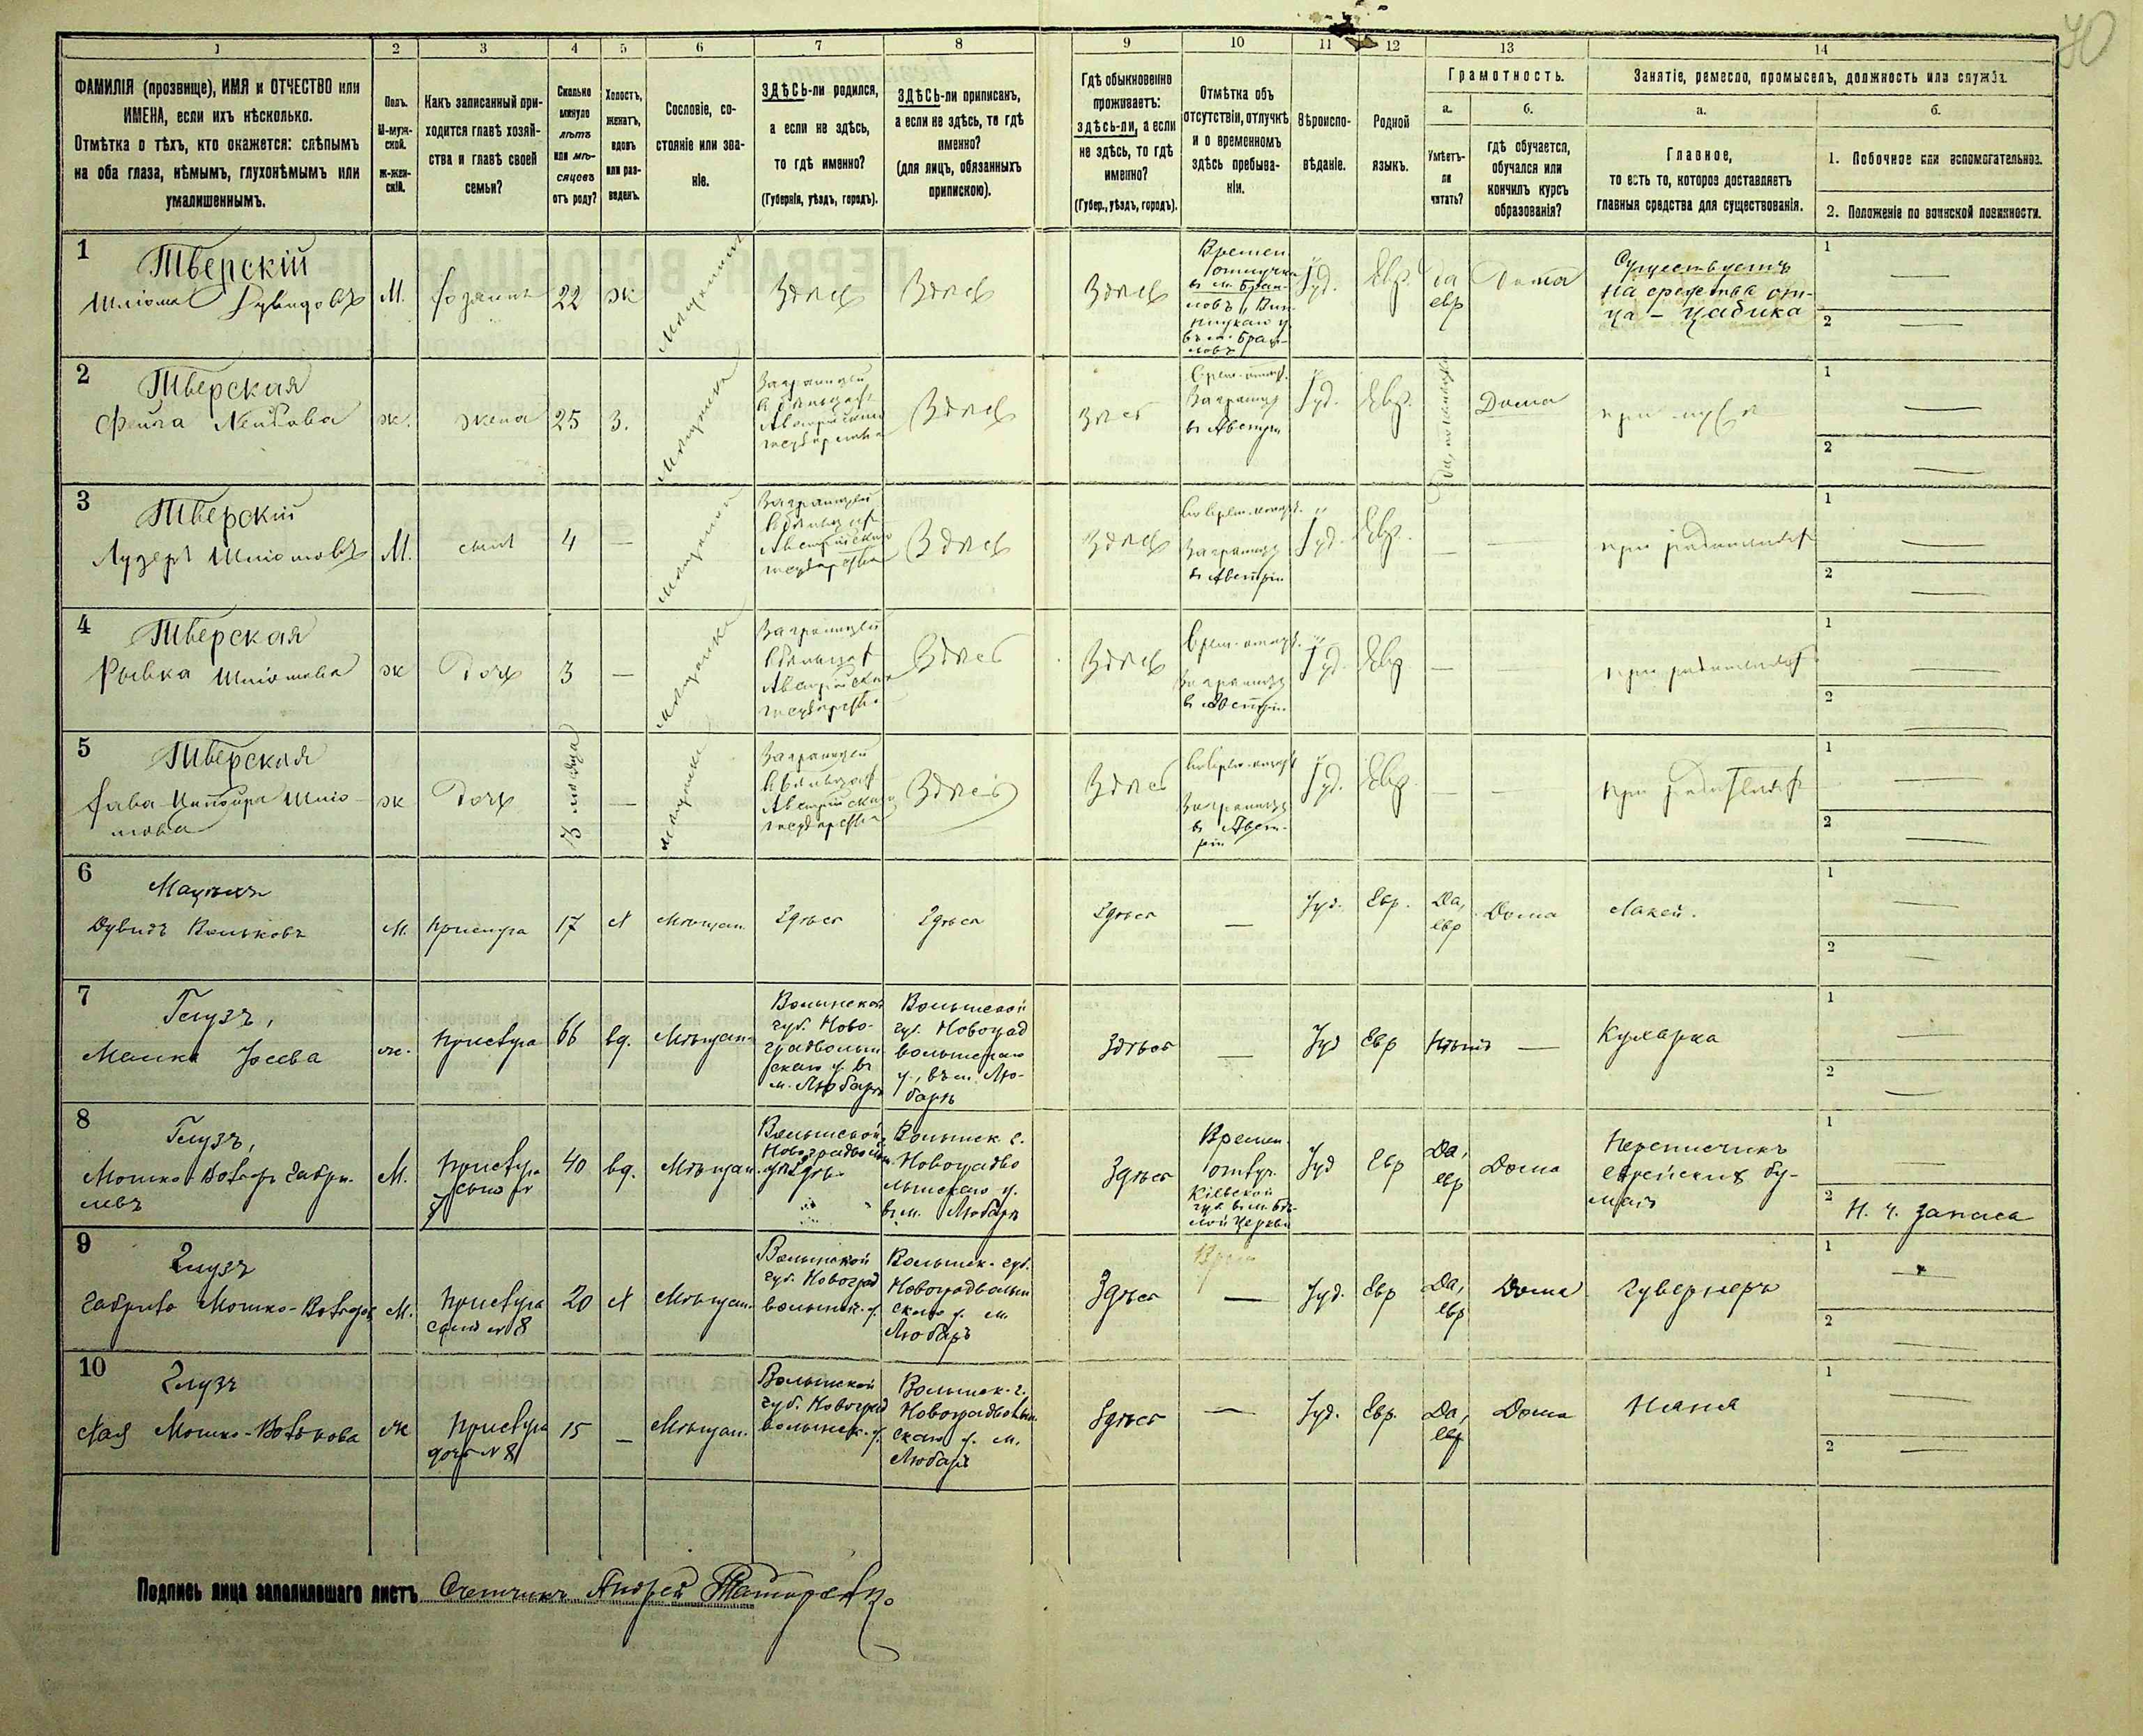 70
1 2 3 4 5 6 7 8 9 10 11 12 13 14
ФАМИЛІЯ (прозвище), ИМЯ и ОТЧЕСТВО или
ИМЕНА, если ихъ нѣсколько.
Отмѣтка о тѣхъ, кто окажется: слѣпымъ
на оба глаза, нѣмымъ, глухонѣмымъ или
умалишеннымъ.
Полъ.
М-муж-
ской.
Ж-жен-
скій.
Какъ записанный при-
ходится главѣ хозяй-
ства и главѣ своей
семьи?
Сколько
минуло
лѣтъ
или мѣ-
сяцевъ
отъ роду?
Холостъ,
женатъ,
вдовъ
или раз-
веденъ.
Сословіе, со-
стояніе или зва-
ніе.
ЗДѢСЬ-ли родился,
а если не здѣсь,
то гдѣ именно?
(Губернія, уѣздъ, городъ).
ЗДѢСЬ-ли приписанъ,
а если не здѣсь, то гдѣ
именно?
(для лицъ, обязанныхъ
припискою).
Гдѣ обыкновенно
проживаетъ:
здѣсь-ли, а если
не здѣсь, то гдѣ
именно?
(Губер., уѣздъ, городъ).
Отмѣтка объ
отсутствіи, отлучкѣ
и о временномъ
здѣсь пребыва-
ніи.
Вѣроиспо-
вѣданіе.
Родной
языкъ.
Грамотность.
а.
Умѣетъ-
ли
читать?
б.
гдѣ обучается,
обучался или
кончилъ курсъ
образованія?
Занятіе, ремесло, промыселъ, должность или служба.
а.
Главное,
то есть то, которое доставляетъ
главныя средства для существованія.
б.
1. Побочное или вспомогательное.
2. Положеніе по воинской повинности.
1
Тверскій
Шліома Дувидовъ
М.
хозяинъ
22
ж
Мѣщанинъ
Здѣсь
Здѣсь
Здѣсь
Времен
отлучка
Іуд.
Евр.
да
евр
Дома
Существуетъ
на средства от-
ца - цадика
1 —
2 —
2
Тверская
Фейга Лейбова
ж.
жена
25
З.
Мѣщанка
Заграницей
Австрійскаго
Здѣсь
Здѣсь
Заграниц
въ Австріи
Іуд.
Евр.
Дома
при мужѣ
1 —
2 —
3
Тверскій
Лузеръ Шліомовъ
М.
сынъ
4
—
Мѣщанинъ
Заграницей
Австрійскаго
Здѣсь
Здѣсь
Заграниц
въ Австріи
Іуд.
Евр.
—
—
при родителяхъ
1 —
2 —
4
Тверская
Рывка Шліомова
ж
Дочь
3
—
Мѣщанка
Заграницей
Австрійскаго
Здѣсь
Здѣсь
Заграниц
въ Австріи
Іуд.
Евр
—
—
при родителяхъ
1 —
2 —
5
Тверская
Хава Шліо-
мова
ж
Дочь
—
Мѣщанка
Заграницей
Австрійскаго
Здѣсь
Здѣсь
Заграниц
въ Авст-
ріи
Іуд.
Евр.
—
—
при родителяхъ
1 —
2 —
6
Дувидъ Вольковъ
М.
прислуга
17
х
Мѣщан.
Здѣсь
Здѣсь
Здѣсь
—
Іуд.
Евр.
Да,
евр
Дома
Лакей.
1 —
2 —
7
Глузъ,
Малка Іосева
ж.
прислуга
66
вд.
Мѣщан.
Волынской
губ. Ново-
градволын
скаго у. въ
м. Любарѣ
Волынской
губ. Новоград
волынскаго
у., въ м. Лю-
барѣ
Здѣсь
—
Іуд
Евр
Нѣтъ
—
Кухарка
1 —
2 —
8
Глузъ,
Мошко-Вольфъ Габри-
левъ
М.
прислуга
40
вд.
Мѣщан.
Волынской
Волынск. г.
Новоградво
лынскаго у.
въ м. Любарѣ
Здѣсь
Времен.
отлуч.
Кіевской
губ. въ м. Бѣ-
лой Церкви
Іуд
Евр
Да,
евр
Дома
Переписчикъ
еврейскихъ бу-
магъ
1 —
2 Н. ч. запаса
9
Глузъ
Габриль Мошко-Вольфовъ
М.
прислуга
сынъ № 8
20
х
Мѣщан.
Волынской
губ. Новоград
волынск. у.
Волынск. губ.
Новоградволын
скаго у. м.
Любаръ
Здѣсь
—
Іуд.
Евр
Да,
евр
Дома
Гувернеръ
1 —
2 —
10
Глузъ
Хая Мошко-Волькова
ж
прислуга
дочь № 8
15
—
Мѣщан.
Волынской
губ. Новоград
волынск. у.
Волынск. г.
Новоградволын
скаго у. м.
Любаръ
Здѣсь
—
Іуд.
Евр.
Да,
евр
Дома
Няня
1 —
2 —
Подпись лица заполнившаго листъ Счетчикъ Андрей